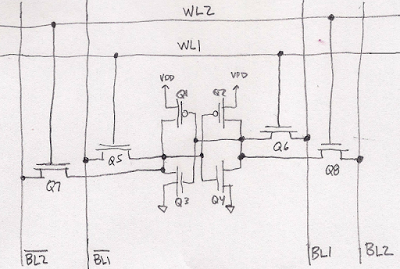 WL2
WL1
VDD VDD
Q1 Q2
Q5 Q6
Q7 Q3 Q4 Q8
BL2 BL1 BL1 BL2